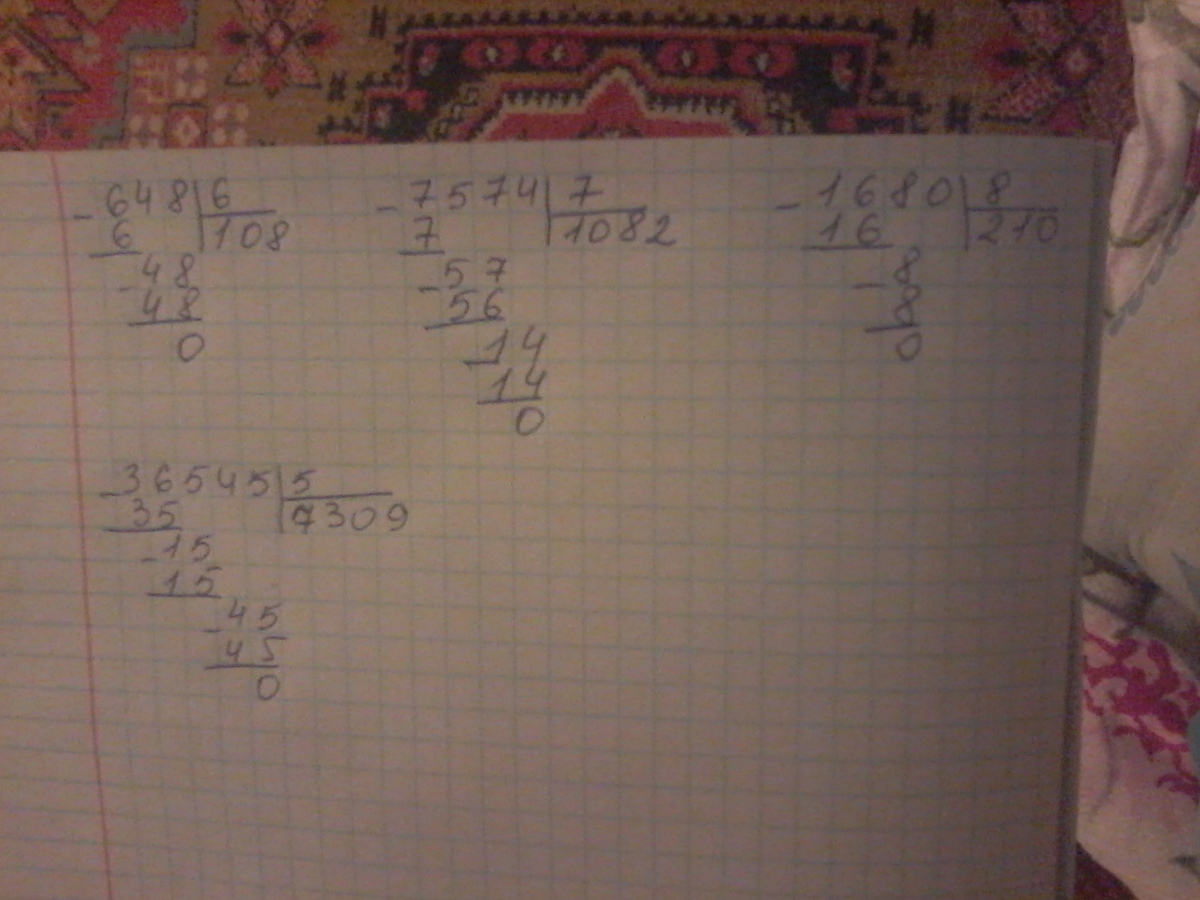 - 648 | 6
6 | 108
- 48
48
0
- 7574 | 7
7 | 1082
- 57
56
- 14
14
0
- 1680 | 8
16 | 210
- 8
8
0
- 36545 | 5
35 | 7309
- 15
15
- 45
45
0